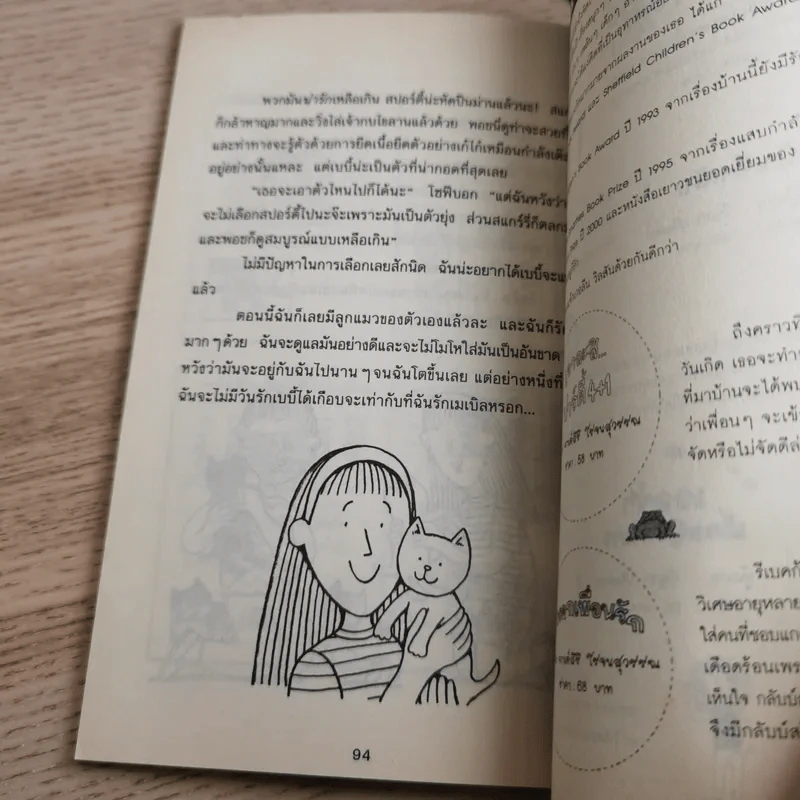 พวกมันน่ารักเหลือเกิน สปอร์ตี้น่ะหัดปีนม่านแล้วนะ!
ก็กล้าหาญมากและวิ่งไล่เจ้ากบไขลานแล้วด้วย พอชนี่ดูท่าจะสวยที่
และท่าทางจะรู้ตัวด้วยการยืดเนื้อยืดตัวอย่างเก้ไก๋เหมือนกำลังเดิน
อยู่อย่างนั้นแหละ แต่เบบี้น่ะเป็นตัวที่น่ากอดที่สุดเลย
"เธอจะเอาตัวไหนไปก็ได้นะ" โซฟีบอก "แต่ฉันหวังว่า
จะไม่เลือกสปอร์ตี้ไปนะจ๊ะเพราะมันเป็นตัวยุ่ง ส่วนสแกร์รี่ก็ตลก
และพอชก็ดูสมบูรณ์แบบเหลือเกิน"
ไม่มีปัญหาในการเลือกเลยสักนิด ฉันน่ะอยากได้เบบี้จะแย่
แล้ว
ตอนนี้ฉันก็เลยมีลูกแมวของตัวเองแล้วละ และฉันก็รัก
มากๆด้วย ฉันจะดูแลมันอย่างดีและจะไม่โมโหใส่มันเป็นอันขาด
หวังว่ามันจะอยู่กับฉันไปนานๆจนฉันโตขึ้นเลย แต่อย่างหนึ่งที่
ฉันจะไม่มีวันรักเบบี้ได้เกือบจะเท่ากับที่ฉันรักเมเบิลหรอก...
94
ผลงานของเธอ ได้แก่
Sheffield Children's Book Award
Book Award ปี 1993 จากเรื่องบ้านนี้ยังมีรัก
Book Prize ปี 1995 จากเรื่องแสบกำลัง
ปี 2000 และหนังสือเยาวชนยอดเยี่ยมของ
วิลสันด้วยกันดีกว่า
ถึงคราวที่
วันเกิด เธอจะทำ
ที่มาบ้านจะได้พบ
ว่าเพื่อนๆ จะเข้า
จัดหรือไม่จัดดี
4+1
ราคา 58 บาท
เพื่อนรัก
ราคา 68 บาท
รีเบคก้า
วิเศษอายุหลาย
ใส่คนที่ชอบแก
เดือดร้อนเพร
เห็นใจ กลับบ์
จึงมีกลับบ์ส